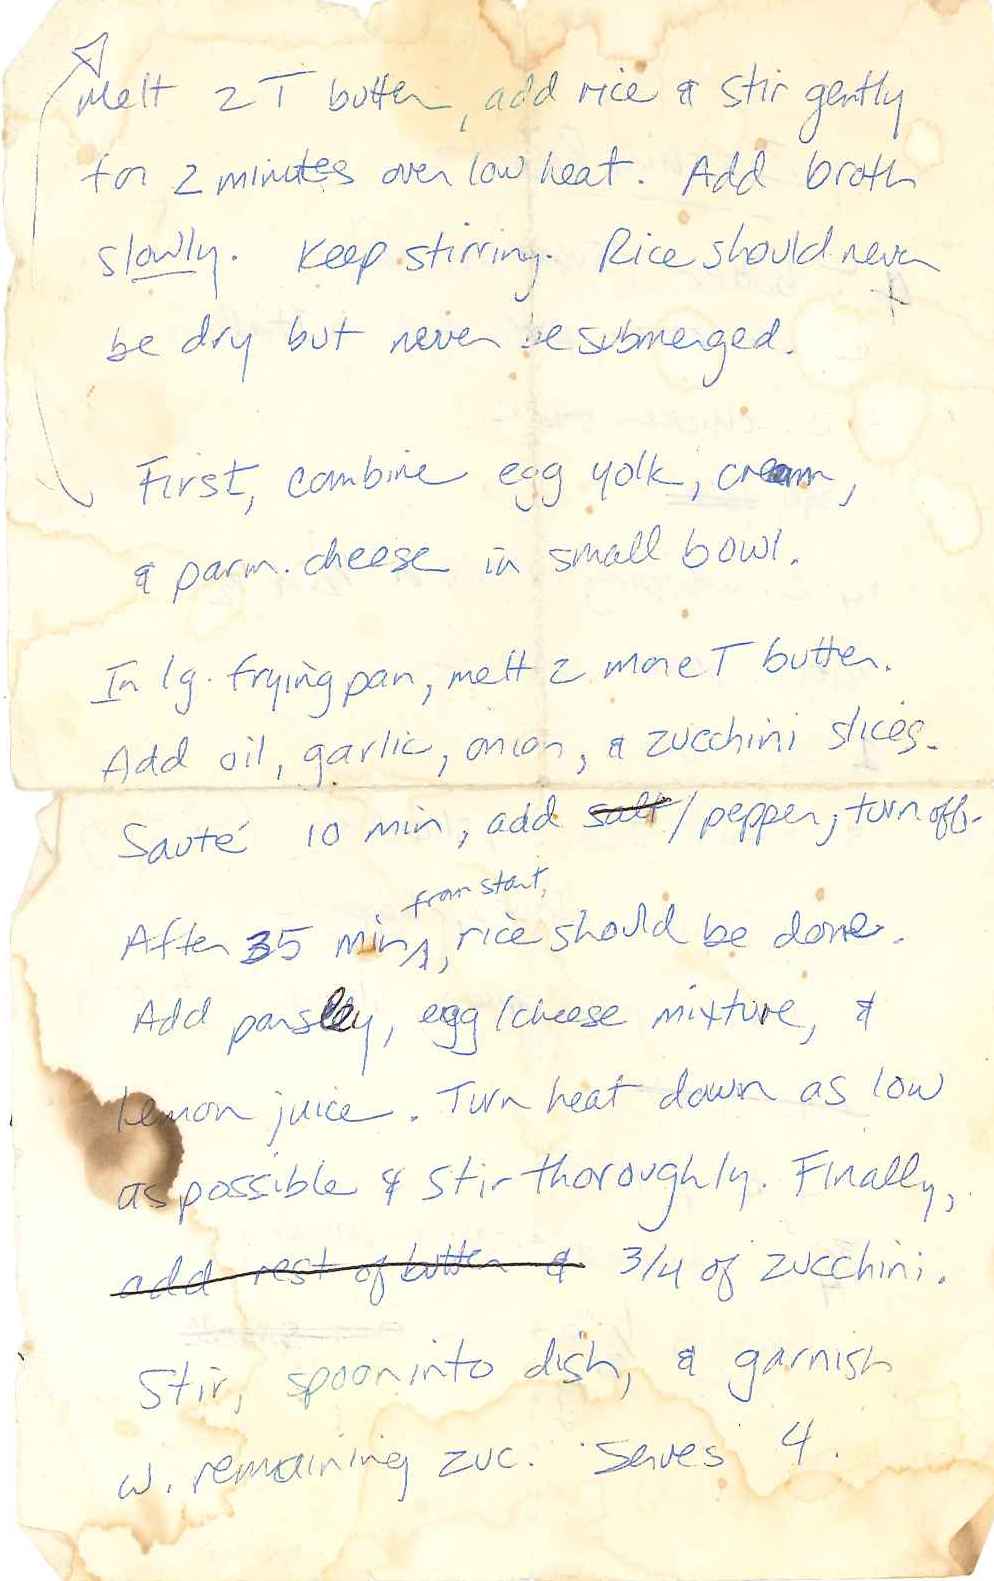 Melt 2 T butter, add rice & stir gently
for 2 minutes over low heat. Add broth
slowly. Keep stirring. Rice should never
be dry but never be submerged.
First, combine egg yolk, cream,
& parm. cheese in small bowl.
In lg. frying pan, melt 2 more T butter.
Add oil, garlic, onion, & zucchini slices.
Sauté 10 min, add salt/pepper, turn off.
from start,
After 35 min, rice should be done.
Add parsley, egg/cheese mixture, &
lemon juice. Turn heat down as low
as possible & stir thoroughly. Finally,
add rest of butter & 3/4 of zucchini.
Stir, spoon into dish, & garnish
w. remaining zuc. Serves 4.